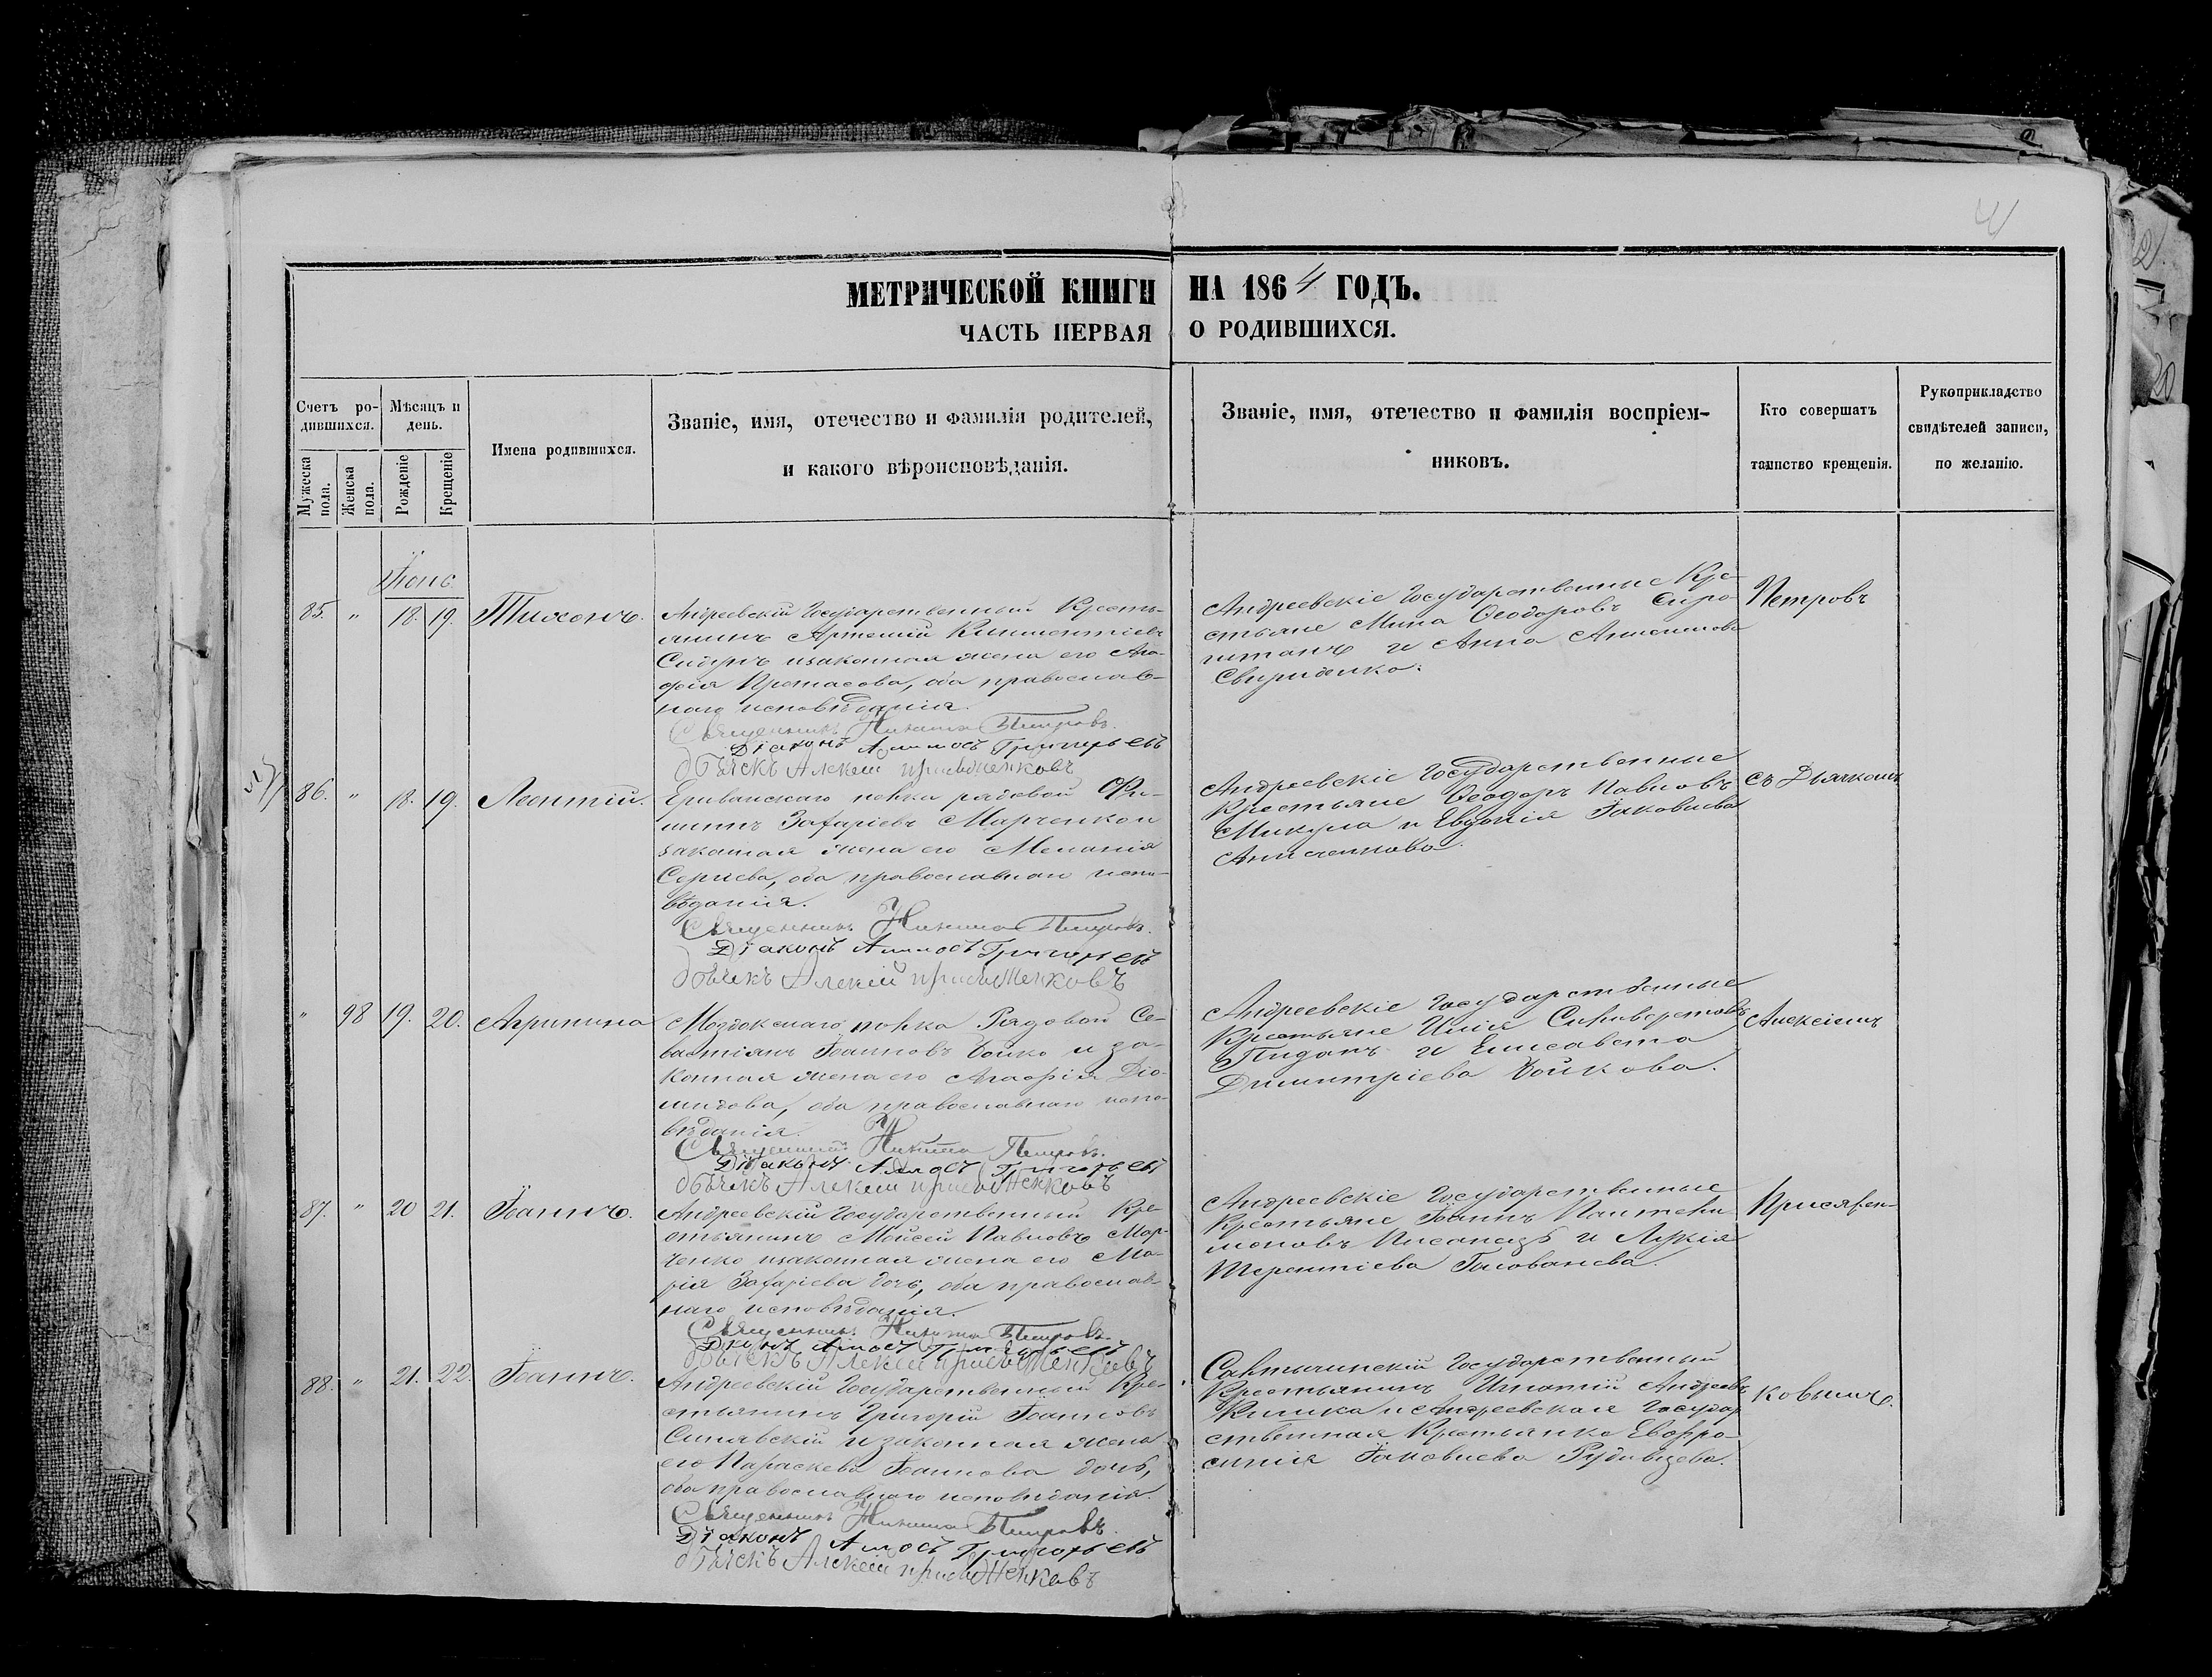 41
МЕТРИЧЕСКОЙ КНИГИ НА 1864 ГОДЪ.
ЧАСТЬ ПЕРВАЯ О РОДИВШИХСЯ.
Счетъ ро-
дившихся.
Мужеска пола.
Женска пола.
Мѣсяцъ и
день.
Рожденіе
Крещеніе
Имена родившихся.
Званіе, имя, отечество и фамилія родителей,
и какого вѣроисповѣданія.
Званіе, имя, отечество и фамилія воспріем-
никовъ.
Кто совершатъ
таинство крещенія.
Рукоприкладство
свидѣтелей записи,
по желанію.
85. " 18. 19. Тихонъ.
Андреевскій Государственный Кресть-
янинъ Артемій
изаконная жена его Ага-
фія Протасова, оба православ-
наго исповѣданія.
Священникъ Никита Петровъ.
Діаконъ Амосъ Григорьевъ
Алексѣй
Андреевскіе Государственные Кре-
стьяне Мина Ѳеодоровъ
и Анна
Петровъ
86. " 18. 19. Леонтій.
Ериванскаго полка рядовой Фи-
Захаріевъ Марченко и
законная жена его Меланія
Сергіева, оба православнаго испо-
вѣданія.
Священникъ Никита Петровъ.
Діаконъ Амосъ Григорьевъ
Алексѣй
Андреевскіе Государственные
Крестьяне Ѳеодоръ Павловъ
Микула и Евдокія Іаковлева
съ Дьячкомъ
" 98 19. 20. Агрипина
Моздокскаго полка Рядовой Се-
вастіянъ Іоанновъ Бойко и за-
конная жена его Агафія Діо-
мидова, оба православнаго испо-
вѣданія.
Священникъ Никита Петровъ.
Діаконъ Амосъ Григорьевъ
Алексѣй
Андреевскіе Государственные
Крестьяне Илія
и Елисавета
Димитріева Бойкова.
Алексіемъ
87. " 20 21. Іоаннъ.
Андреевскій Государственный Кре-
стьянинъ Мойсей Павловъ Мар-
ченко изаконная жена его Ма-
рія Захаріева дочь, оба православ-
наго исповѣданія.
Священникъ Никита Петровъ.
Діаконъ Амосъ Григорьевъ
Алексѣй
Андреевскіе Государственные
Крестьяне Іоаннъ Пантели-
моновъ Писанецъ и Лукія
Терентіева Голованева.
Присяжен-
88. " 21. 22. Іоаннъ.
Андреевскій Государственный Кре-
стьянинъ Григорій Іоанновъ
Синявскій и законная жена
его Параскева Іоаннова дочь,
оба православнаго исповѣданія.
Священникъ Никита Петровъ.
Діаконъ Амосъ Григорьевъ
Алексѣй
Государственный
Крестьянинъ Игнатій Андреевъ
Государ
ственная Крестьянка Евфро-
синія Іаковлева
ковымъ.